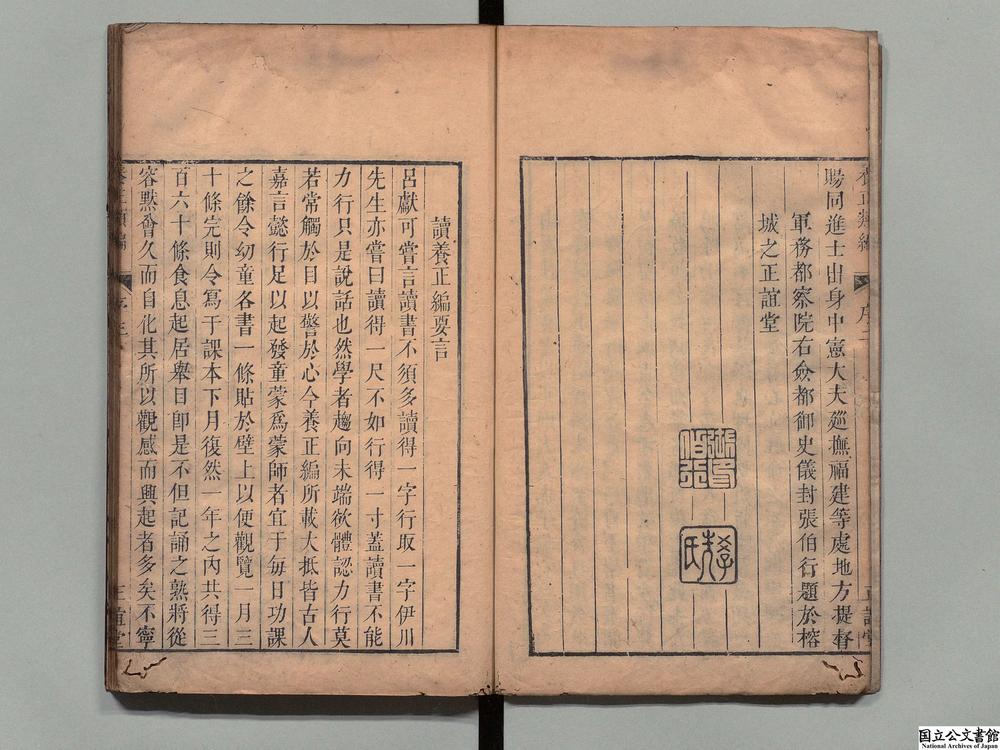 賜同進士出身中憲大夫巡撫福建等處地方提督
軍務都察院右僉都御史儀封張伯行題於榕
城之正誼堂
讀養正編要言
呂獻可嘗言讀書不須多讀得一字行取一字伊川
先生亦嘗曰讀得一尺不如行得一寸蓋讀書不能
力行只是說話也然學者趨向未端欲體認力行莫
若常觸於目以警於心今養正編所載大抵皆古人
嘉言懿行足以起發童蒙爲蒙師者宜于每日功課
之餘令幼童各書一條貼於壁上以便觀覽一月三
十條完則令寫于課本下月復然一年之內共得三
百六十條食息起居舉目卽是不但記誦之熟將從
容默會久而自化其所以觀感而興起者多矣不寧
国立公文書館
National Archives of Japan